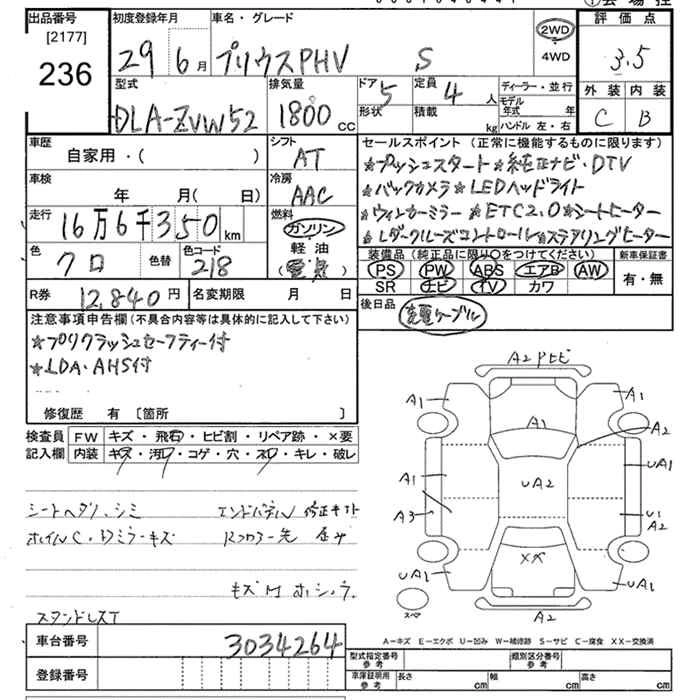 出品番号 初度登録年月 車名・グレード 評価点
[2177]
236 29 6月 プリウスPHV S 2WD 4WD 3.5
型式 排気量 ドア 5 定員 4人 ディーラー・並行 外装 内装
DLA-ZVW52 1800cc 形状 積載 kg モデル年式 年 ハンドル 左・右 C B
車歴 シフト セールスポイント(正常に機能するものに限ります)
自家用・( ) AT ☆プッシュスタート☆純正ナビ・DTV
車検 冷房 ☆バックカメラ☆LEDヘッドライト
年 月( 日) AAC ☆ウィンカーミラー☆ETC2.0☆シートヒーター
走行 16万6千350km 燃料 ガソリン ☆レダークルーズコントロール☆ステアリングヒーター
色 クロ 色替 色コード 218 軽油 装備品(純正品に限り○をつけてください) 新車保証書
PS PW ABS エアB AW 有・無
SR ナビ TV カワ
R券 12,840円 名変期限 月 日 後日品 充電ケーブル
注意事項申告欄(不具合内容等は具体的に記入して下さい)
☆プリクラッシュセーフティー付
☆LDA・AHS付
修復歴 有 [箇所 ]
検査員 FW キズ・飛石・ヒビ割・リペア跡・×要
記入欄 内装 キズ・汚レ・コゲ・穴・スレ・キレ・破レ
A2
A1 A1
A1 A2
A1 UA2 UA1
A3 U1
A2
XX
UA1 UA1
A2
スペア
シートヘタリ、シミ
ホイルC・Dミラーキズ
スタンドレスT
A-キズ E-エクボ U-凹み W-補修跡 S-サビ C-腐食 XX-交換済
車台番号 3034264 型式指定番号 参考 類別区分番号 参考
登録番号 車庫証明用 参考 長さ cm 幅 cm 高さ cm